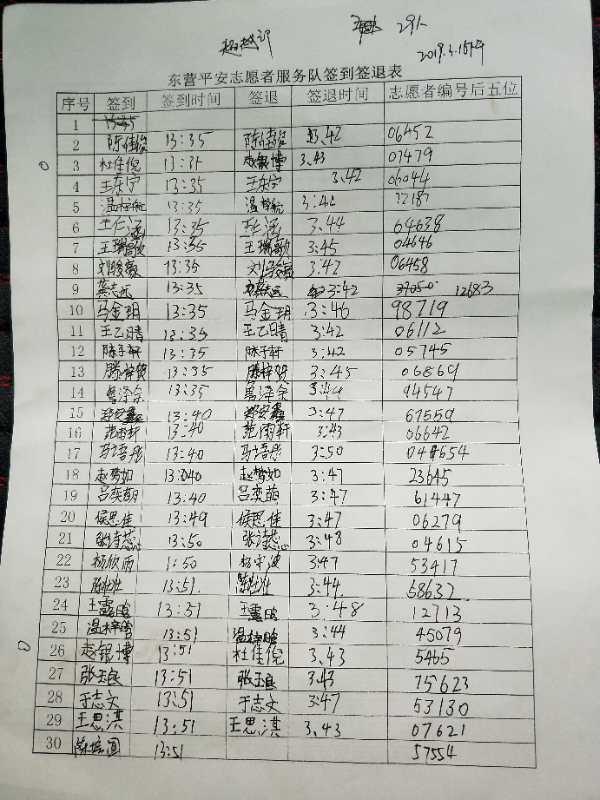 超越部 29人
2019.3.16下午
东营平安志愿者服务队签到签退表
序号 签到 签到时间 签退 签退时间 志愿者编号后五位
1
2 陈佳俊 13:35 陈佳俊 3.42 06452
3 杜佳倪 13:35 赵银博 3.43 07479
4 王东宇 13:35 王东宇 3.42 06044
5 温梓航 13:35 温梓航 3:42
6 王仁涵 13:35 王仁涵 3.44 64638
7 王瑞歌 13:35 王瑞歌 3:45 04646
8 13:35 3:42 06458
9 蔡志远 13:35 蔡志远 3:42 12683
10 马金玥 13:35 马金玥 3:46 98719
11 王乙晴 13:35 王乙晴 3:42 06112
12 陈子轩 13:35 陈子轩 3:42 05745
13 滕梓贺 13:35 滕梓贺 3:45 06869
14 曹泽余 13:35 曹泽余 3:49 94547
15 13:40 3:47 67559
16 范雨轩 13:40 范雨轩 3:43 06642
17 13:40 3:50 048654
18 赵梦如 13:040 赵梦如 3:47 23645
19 吕奕萌 13:40 吕奕萌 3:47 61447
20 侯思佳 13:49 侯思佳 3:47 06279
21 张诗蕊 13:50 张诗蕊 3:48 04615
22 杨欣雨 1:50 3:47 53417
23 13:51 3:44 58632
24 王露晗 13:51 王露晗 3:48 12713
25 温梓晗 13:51 温梓晗 3:44 45079
26 赵银博 13:51 杜佳倪 3.43 5465
27 张玉良 13:51 张玉良 3.43 75623
28 于志文 13:51 于志文 3:47 53130
29 王思淇 13:51 王思淇 3.43 07621
30 13:51 57554